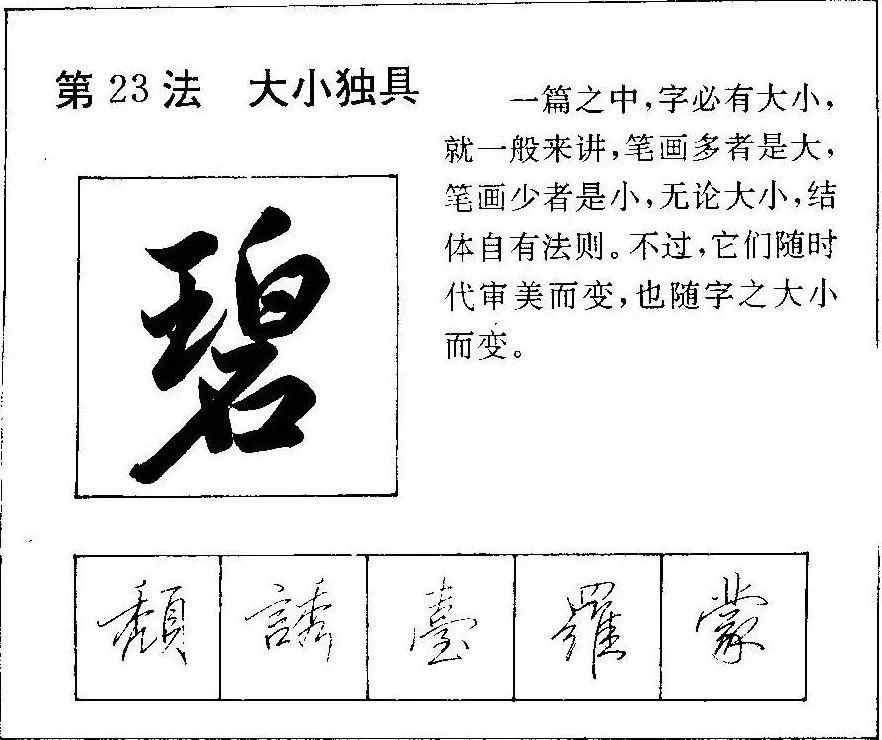 第23法 大小独具
一篇之中,字必有大小,
就一般来讲,笔画多者是大,
笔画少者是小,无论大小,结
体自有法则。不过,它们随时
代审美而变,也随字之大小
而变。
碧
頹 誘 臺 羅 蒙